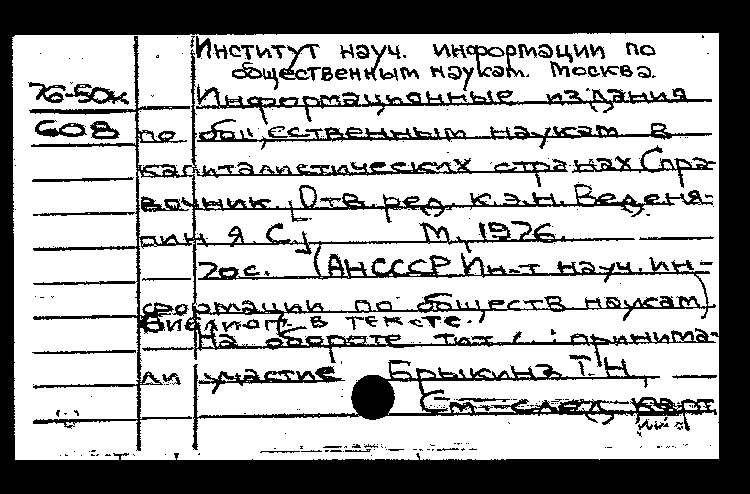 Институт науч. информации по
общественным наукам. Москва.
76-50к Информационные издания
608 по общественным наукам в
капиталистических странах Спра-
вочник. [Отв. ред. к.э.н. Веденя-
пин Я. С.] М., 1976.
20с. (АНСССР Ин-т науч. ин-
формации по обществ наукам)
Библиогр. в тексте.
На обороте тит. : принима-
ли участие Брыкина Т.Н.,
См. след карт